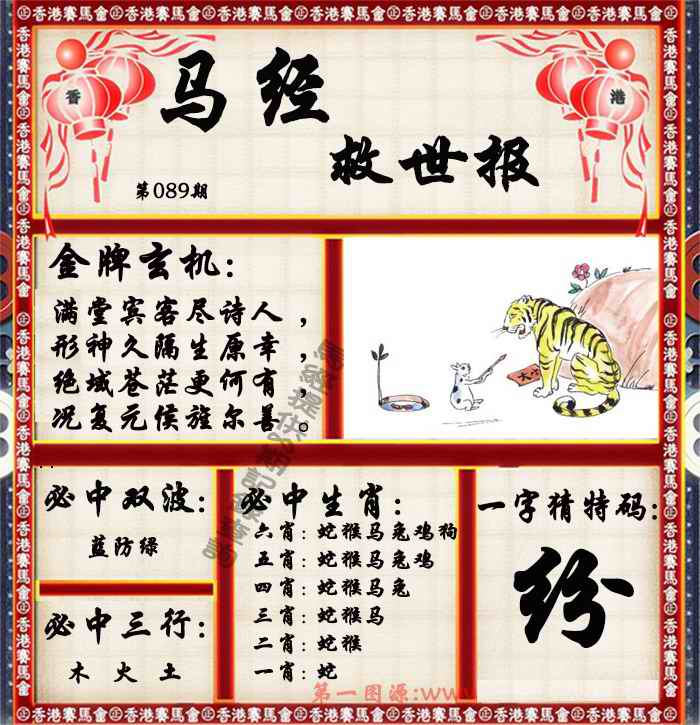 香港賽馬會
香
港
马经
救世报
第089期
金牌玄机:
满堂宾客尽诗人,
形神久隔生原幸,
绝域苍茫更何有,
况复元侯旌尔善。
必中双波:
蓝防绿
必中三行:
木 火 土
必中生肖:
六肖: 蛇猴马兔鸡狗
五肖: 蛇猴马兔鸡
四肖: 蛇猴马兔
三肖: 蛇猴马
二肖: 蛇猴
一肖: 蛇
一字猜特码:
纷
第一图源:www